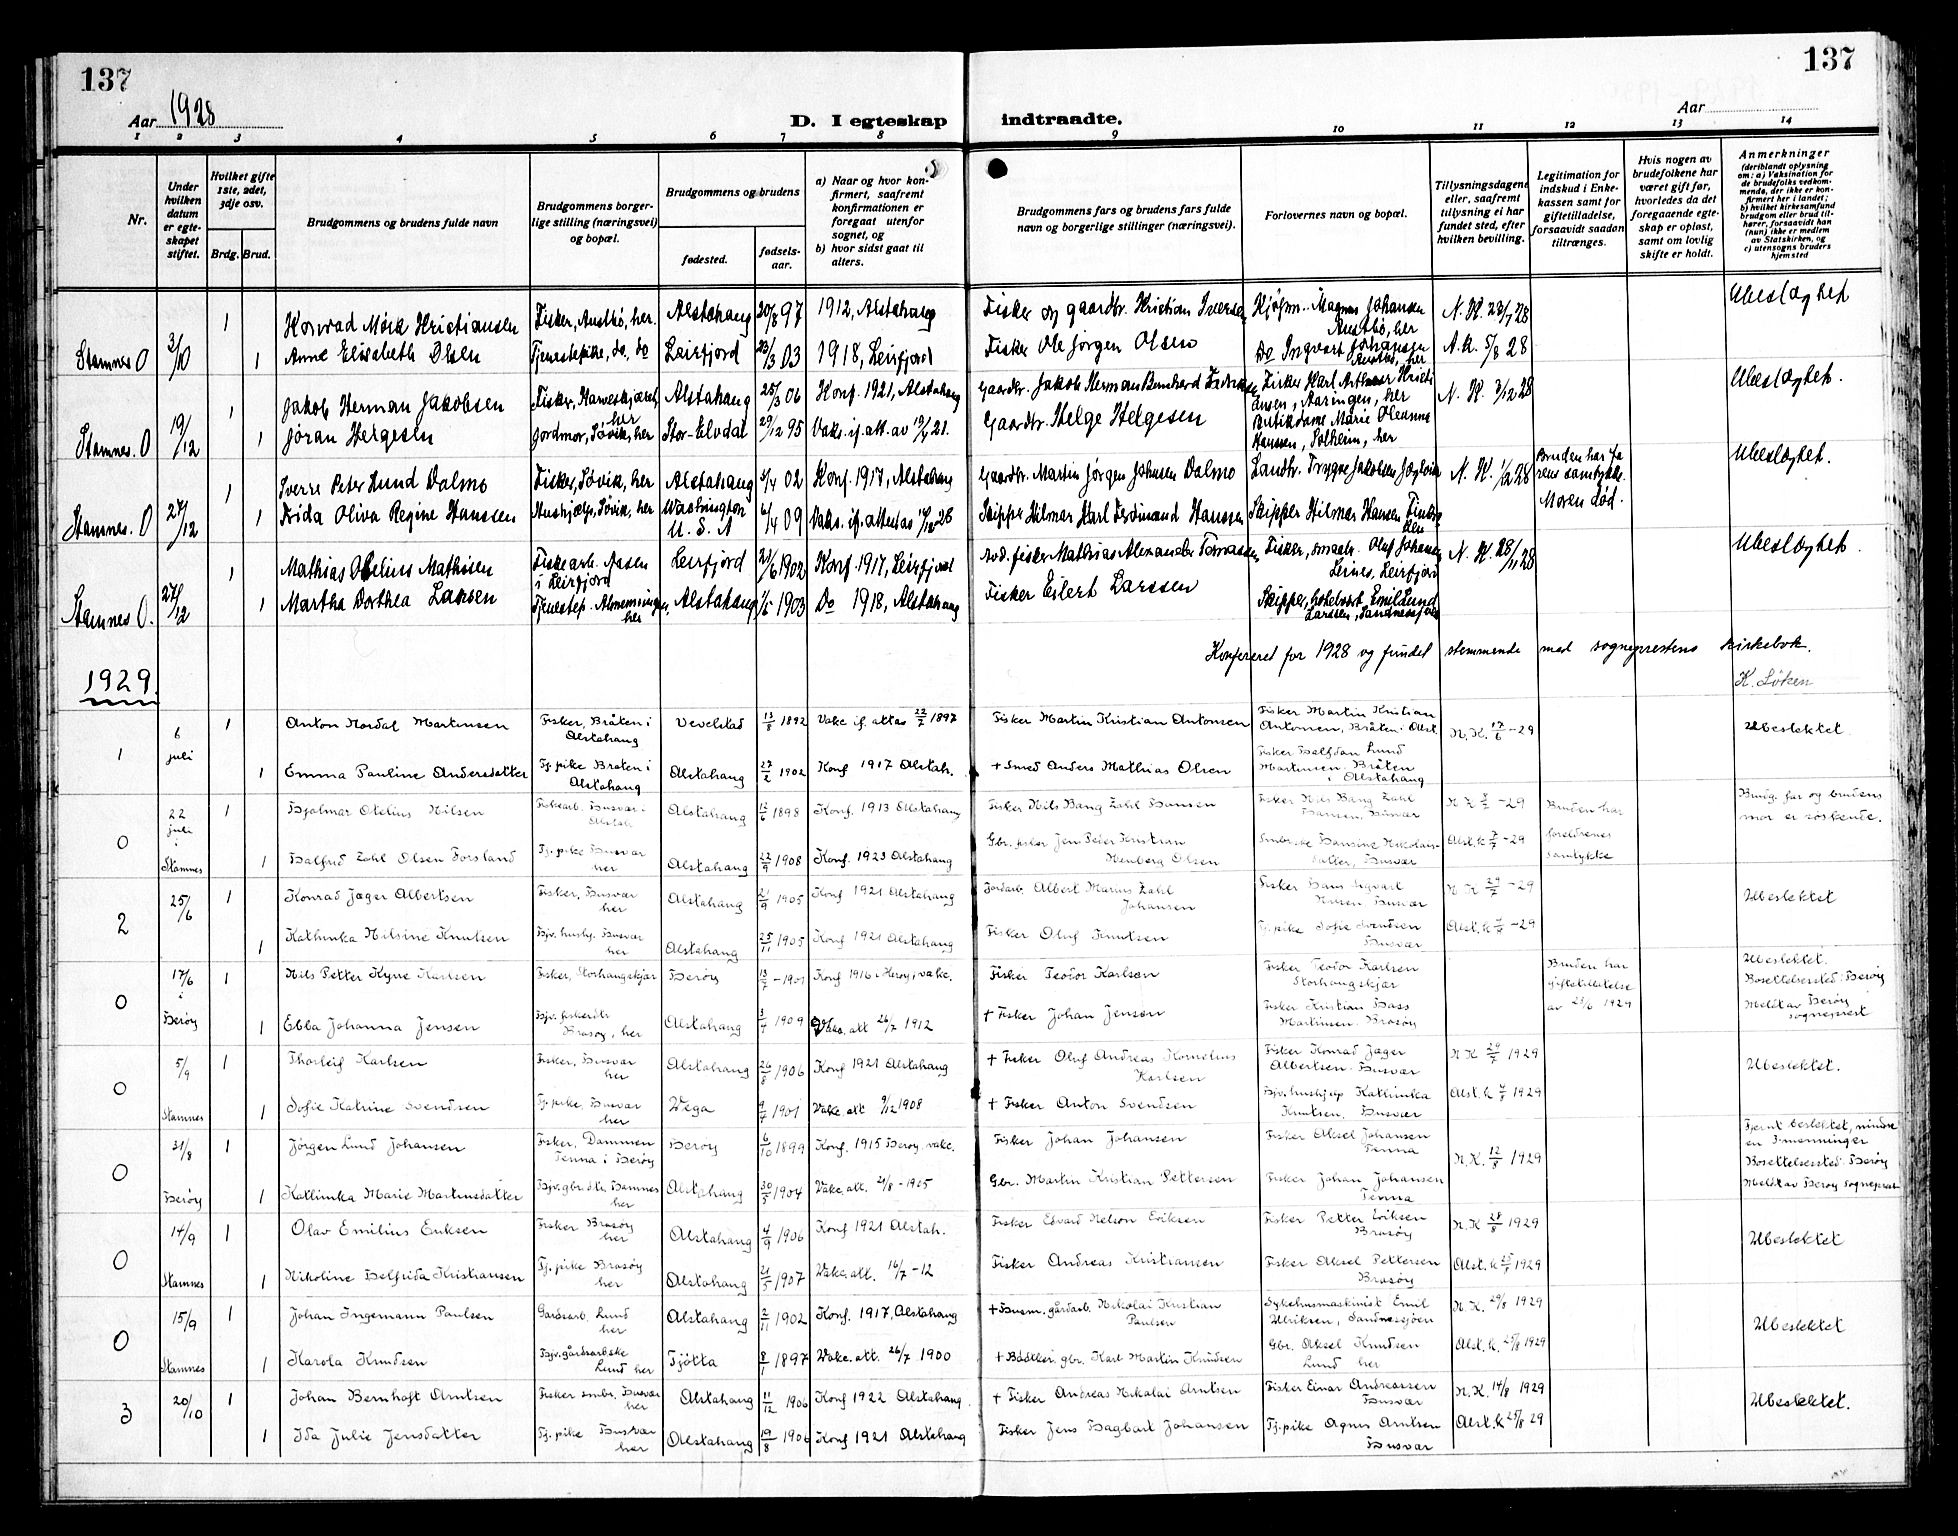 137
137
Aar 1928
D. I egteskap indtraadte.
Aar
1 2 3 4 5 6 7 8 9 10 11 12 13 14
Nr.
Under hvilken datum er egteskapet stiftet.
Hvilket gifte 1ste, 2det, 3dje osv.
Brdg. Brud.
Brudgommens og brudens fulde navn
Brudgommens borgerlige stilling (næringsvei) og bopæl.
Brudgommens og brudens
fødested.
fødselsaar.
a) Naar og hvor konfirmert, saafremt konfirmationen er foregaat utenfor sognet, og
b) hvor sidst gaat til alters.
Brudgommens fars og brudens fars fulde navn og borgerlige stillinger (næringsvei).
Forlovernes navn og bopæl.
Tillysningsdagene eller, saafremt tillysning ei har fundet sted, efter hvilken bevilling.
Legitimation for indskud i Enkekassen samt for giftetilladelse, forsaavidt saadan tiltrænges.
Hvis nogen av brudefolkene har været gift før, hvorledes da det foregaaende egteskap er opløst, samt om lovlig skifte er holdt.
Anmerkninger
(deriblandt oplysning om: a) Vaksination for de brudefolks vedkommende, der ikke er konfirmert her i landet; b) hvilket kirkesamfund brudgom eller brud tilhører, forsaavidt han (hun) ikke er medlem av Statskirken, og c) utensogns bruders hjemsted
1 Konrad Mørk Kristiansen Fisker, Austbø, her. Alstahaug 20/8 97 1912, Alstahaug Fisker og gaardbr. Kristian Iversen Kjøpm. Magnus Johansen Austbø, her N. K. 23/7 28 Ubeslægtet
Stamnes 0 3/10 1 Anne Elisabeth Olsen Tjenestepike, do, do Leirfjord 23/3 03 1918, Leirfjord Fisker Ole Jørgen Olsen Do Ingvart Johansen Austbø, her A. K. 5/8 28
1 Jakob Herman Jakobsen Fisker, her Alstahaug 25/3 06 Konf. 1921, Alstahaug Gaardbr. Jakob Herman Bernhard Fisker Karl Arthur Kristiansen, Aaringen, her N. K. 3/12 28 Ubeslægtet.
Stamnes. 0 19/12 1 Jøran Helgesen Jordmor, Søvik, her Stor-Elvdal 29/12 95 Vaks. if. att. av 19/6 21. Gaardbr. Helge Helgesen Butikdame Marie Oleanna Hanssen, Solheim, her
1 Sverre Peter Lund Dalmo Fisker, Søvik, her Alstahaug 5/4 02 Konf. 1917, Alstahaug Gaardbr. Martin Jørgen Johnsen Dalmo Landbr. Trygve Jakobsen N. K. 1/12 28 Bruden har farens samtykke. Moren død. Ubeslægtet.
Stamnes. 0 27/12 1 Frida Oliva Regine Hanssen Hushjelp, Søvik, her Washington U. S. A 6/4 09 Vaks. if. attest Skipper Hilmar Karl Ferdinand Hanssen Skipper Hilmar Hansen
1 Mathias Otelius Mathisen Fiskearb. Aasen i Leirfjord Leirfjord 21/6 1902 Konf. 1917, Leirfjord Avd. fisker Mathias Alexander Tomassen Fisker, smaabr. Oluf Johansen Leines, Leirfjord N. K. 28/11 28 Ubeslægtet.
Stamnes 0. 27/12 1 Martha Dorthea Larsen Tjenestep. her Alstahaug 1/6 1903 Do 1918, Alstahaug Fisker Eilert Larssen Skipper, hotelvært Emil Lund Larssen, Sandnessjøen
Konfereret for 1928 og fundet stemmende med sogneprestens kirkebok.
K. Løken
1929.
1 6 juli 1 Anton Nordal Martinsen Fisker, Bråten i Alstahaug Vevelstad 13/8 1892 Vakc. if. attas 22/7 1897 Fisker Martin Kristian Antonsen Fisker Martin Kristian Antonsen, Bråten i Alst. N. K. 17/6 -29 Ubeslektet
1 Emma Pauline Andersdatter Tj. pike Bråten i Alstahaug Alstahaug 27/2 1902 Konf 1917 Alstah. + Smed Anders Mathias Olsen Fisker Halfdan Lund Martinsen. Bråten i Alstahaug
0 22 juli 1 Hjalmar Otelius Nilsen Fiskearb. Husvær i Alstah Alstahaug 12/6 1898 Konf. 1913 Alstahaug Fisker Nils Bang Zahl Hansen Fisker Nils Bang Zahl Hansen, Husvær N K 8/2 -29 Bruden har foreldrenes samtykke Brudg. far og brudens mor er søskende.
Stamnes 1 Halfrid Zahl Olsen Forsland Tj. pike Husvær her Alstahaug 22/9 1908 Konf. 1923 Alstahaug Gbr. fisker Jen Peder Kristian Henberg Olsen Hansine Nikolaisdatter, Husvær Alst. k 7/7 -29
2 25/6 1 Konrad Jæger Albertsen Fisker, Husvær her Alstahaug 21/9 1905 Konf 1921 Alstahaug Jordarb. Albert Marius Zahl Johansen Fisker Hans Sigvart Nilsen. Husvær N K 29/7 -29 Ubeslektet
1 Kathinka Nilsine Knutsen Hjv. hushj. Husvær her Alstahaug 25/11 1905 Konf 1921 Alstahaug Fisker Oluf Knutsen Tj. pike Sofie Svendsen Husvær Alst. k 7/7 -29
0 17/6 i Herøy 1 Nils Petter Kyne Karlsen Fisker, Storhaugskjær Herøy 13/7 -1901 Konf 1916 i Herøy, vakc. Fisker Teodor Karlsen Fisker Teodor Karlsen Storhaugskjær Bruden har giftetillatelse av 23/6 1929 Ubeslektet. Bosettelsessted: Herøy Meldt av Herøy sogneprest
1 Ebba Johanna Jensen Hjv. fiskerdtr Brasøy, her Alstahaug 3/7 1909 Vakc. att 26/7 1912 + Fisker Johan Jensen Fisker Kristian Hass Martinsen. Brasøy
0 5/9 1 Thorleif Karlsen Fisker, Husvær her Alstahaug 26/8 1906 Konf 1921 Alstahaug + Fisker Oluf Andreas Kornelius Karlsen Fisker Konrad Jæger Albertsen. Husvær N K 29/7 1929 Ubeslektet.
Stamnes 1 Sofie Katrine Svendsen Tj. pike, Husvær her Vega 9/7 1901 Vakc. att 9/12 1908 + Fisker Anton Svendsen Hjv. hushjelp Kathinka Knutsen, Husvær Alst. k 4/7 1929
0 31/8 1 Jørgen Lund Johansen Fisker, Dammen Tenna i Herøy Herøy 6/10 1899 Konf. 1915 Herøy, vakc. Fisker Johan Johansen Fisker Aksel Johansen Tenna N. K. 12/8 1929 Fjernt beslektet, mindre en 3-menninger Bosettelsessted: Herøy Meldt av Herøy sogneprest
Herøy 1 Kathinka Marie Martinsdatter Hjv. gbr. dtr. Hamnes her Alstahaug 30/5 1904 Vakc. att. 21/8 -1905 Gbr. Martin Kristian Pettersen Fisker Johan Johansen Tenna
0 14/9 1 Olav Emilius Eriksen Fisker Brasøy her Alstahaug 4/9 1906 Konf 1921 Alstah. Fisker Edvard Nelson Eriksen Fisker Petter Eriksen Brasøy N. K 28/8 1929 Ubeslektet
Stamnes 1 Nikoline Helfrida Kristiansen Tj. pike Brasøy her Alstahaug 21/5 1907 Vakc. att. 16/7 -12 Fisker Andreas Kristiansen Fisker Aksel Pettersen Brasøy Alst. k 25/7 1929
0 15/9 1 Johan Ingemann Paulsen Gårdsarb. Lund her Alstahaug 2/11 1902 Konf. 1917, Alstahaug + Husm. gårdarb. Nikolai Kristian Paulsen Sykehusmaskinist Emil Ulriksen, Sandnessjøen N. K. 29/8 1929 Ubeslektet
Stamnes 1 Karola Knudsen Hjv. gårdsarbske Lund her Tjøtta 8/1 1897 Vakc. att. 26/7 1900 + Bødtker, gbr. Karl Martin Knudsen Gbr. Aksel Knudsen Lund her Alst. k. 25/8 1929
3 20/10 1 Johan Bernhoft Arntsen Fisker smbr. Husvær her Alstahaug 11/12 1906 Konf 1922 Alstahaug. + Fisker Andreas Nikolai Arntsen Fisker Einar Andreassen Husvær N. K. 14/8 1929 Ubeslektet.
1 Ida Julie Jensdatter Tj. pike Husvær her Alstahaug 19/8 1906 Konf 1921 Alstahaug Fisker Jens Dagbart Johansen Tj. pike Agnes Arntsen Husvær Alst. k 25/8 29